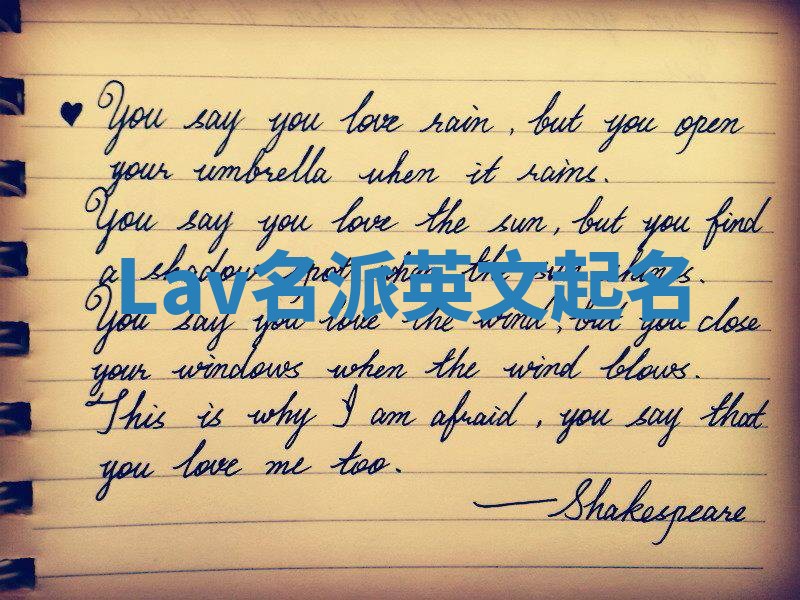 You say you love rain, but you open
your umbrella when it rains.
You say you love the sun, but you find
a shadow spot when the sun shines.
Lav名派英文起名
You say you love the wind, but you close
your windows when the wind blows.
This is why I am afraid, you say that
you love me too.
—Shakespeare